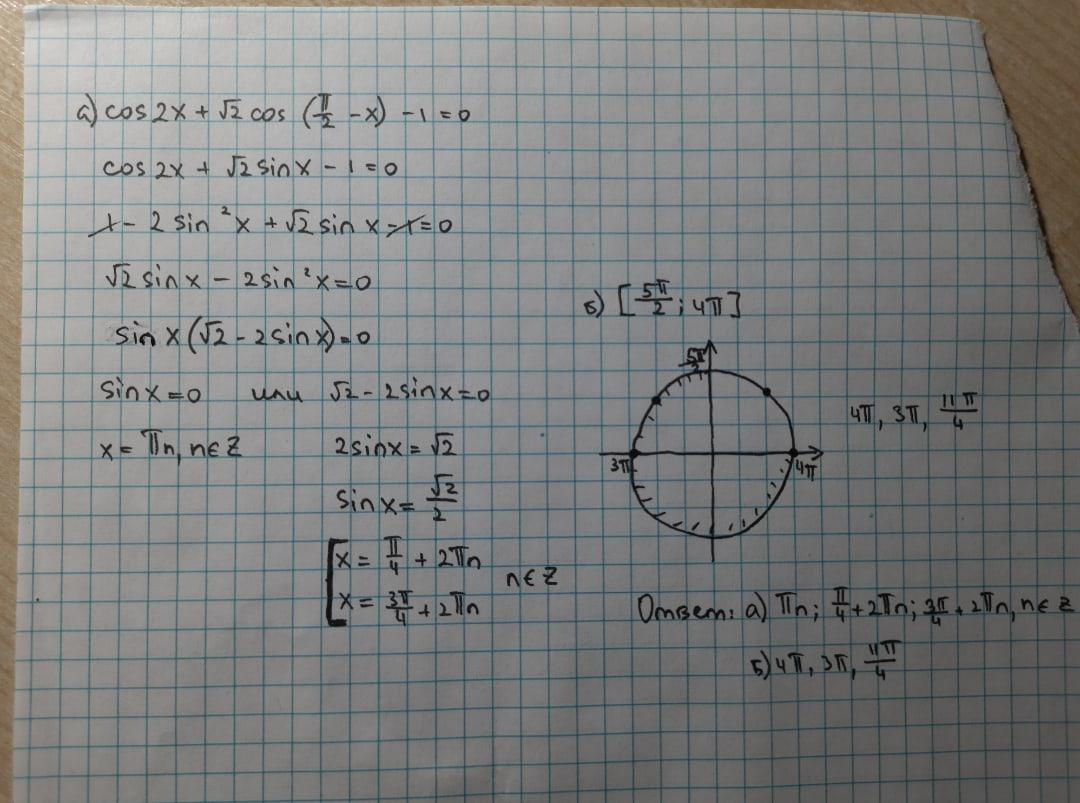 а) cos 2x + √2 cos (π/2 - x) - 1 = 0
cos 2x + √2 sin x - 1 = 0
1 - 2 sin²x + √2 sin x - 1 = 0
√2 sin x - 2 sin²x = 0
sin x (√2 - 2 sin x) = 0
sin x = 0 или √2 - 2 sin x = 0
x = πn, n ∈ Z
2 sin x = √2
sin x = √2/2
[ x = π/4 + 2πn
x = 3π/4 + 2πn
n ∈ Z
б) [5π/2; 4π]
5π/2
3π
4π
4π, 3π, 11π/4
Ответ: а) πn; π/4 + 2πn; 3π/4 + 2πn, n ∈ Z
б) 4π, 3π, 11π/4